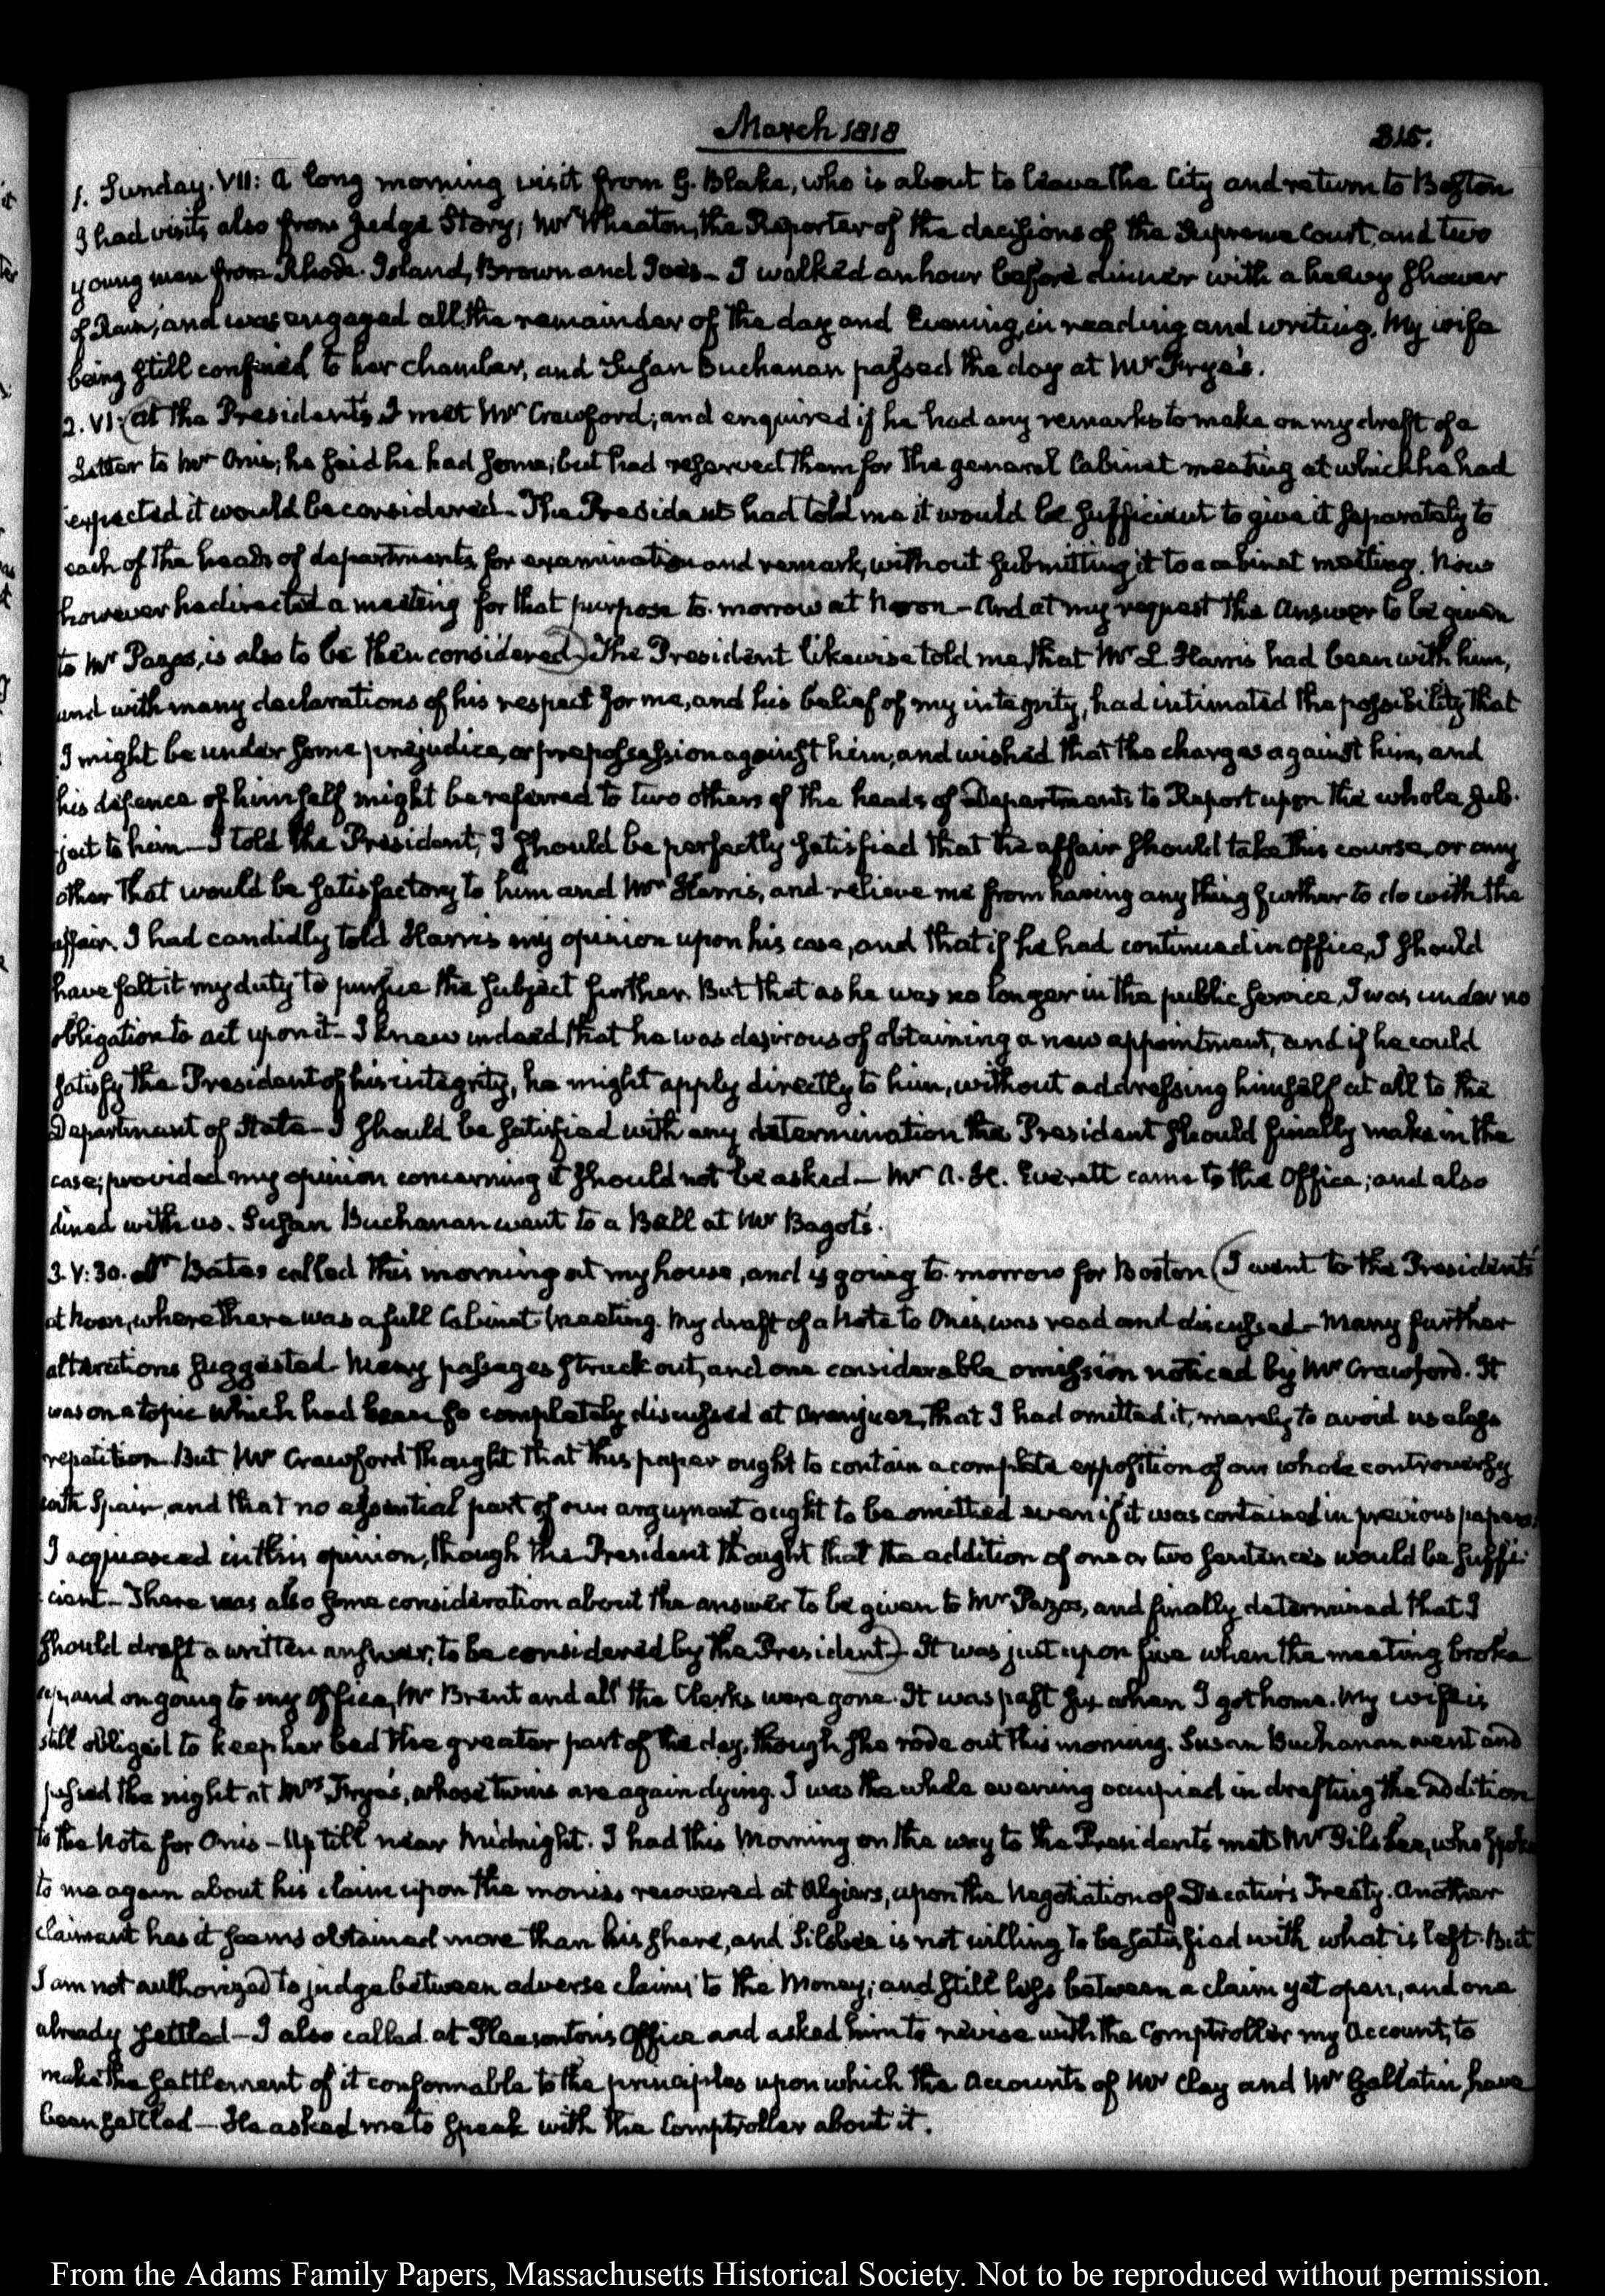 March 1818
315.
1. Sunday. VII: A long morning visit from G. Blake, who is about to leave the City and return to Boston
I had visits also from Judge Story, Mr Wheaton, the Reporter of the decisions of the Supreme Court, and two
young men from Rhode-Island, Brown and Ives — I walked an hour before dinner with a heavy shower
of Rain; and was engaged all the remainder of the day and Evening, in reading and writing. My wife
being still confined to her chamber, and Susan Buchanan passed the day at Mr Frye's.
2. VI: (At the President's I met Mr Crawford; and enquired if he had any remarks to make on my draft of a
Letter to Mr Onis; he said he had some; but had reserved them for the general Cabinet meeting at which he had
expected it would be considered — The President had told me it would be sufficient to give it separately to
each of the heads of departments, for examination and remark, without submitting it to a cabinet meeting. Now
however he directed a meeting for that purpose to-morrow at Noon — And at my request the Answer to be given
to Mr Pazos, is also to be then considered) The President likewise told me, that Mr L. Harris had been with him,
and with many declarations of his respect for me, and his belief of my integrity, had intimated the possibility that
I might be under some prejudice, or prepossession against him; and wished that the charges against him, and
his defence of himself might be referred to two others of the heads of Departments to Report upon the whole sub-
ject to him — I told the President, I should be perfectly satisfied that the affair should take this course, or any
other that would be satisfactory to him and Mr Harris, and relieve me from having any thing further to do with the
affair. I had candidly told Harris my opinion upon his case, and that if he had continued in Office, I should
have felt it my duty to pursue the subject further. But that as he was no longer in the public service, I was under no
obligation to act upon it — I knew indeed that he was desirous of obtaining a new appointment, and if he could
satisfy the President of his integrity, he might apply directly to him, without addressing himself at all to the
Department of State — I should be satisfied with any determination the President should finally make in the
case; provided my opinion concerning it should not be asked — Mr A. H. Everett came to the Office; and also
dined with us. Susan Buchanan went to a Ball at Mr Bagot's.
3. V:30. Mr Bates called this morning at my house, and is going to-morrow for Boston (I went to the President's
at Noon, where there was a full Cabinet-Meeting. My draft of a Note to Onis, was read and discussed — Many further
alterations suggested. Many passages struck out, and one considerable omission noticed by Mr Crawford. It
was on a topic which had been so completely discussed at Aranjuez, that I had omitted it, merely to avoid useless
repetition. But Mr Crawford thought that this paper ought to contain a complete exposition of our whole controversy
with Spain, and that no essential part of our argument ought to be omitted even if it was contained in previous papers.
I acquiesced in this opinion, though the President thought that the addition of one or two sentences would be suffi-
cient — There was also some consideration about the answer to be given to Mr Pazos, and finally determined that I
should draft a written answer, to be considered by the President) — It was just upon five when the meeting broke
up, and on going to my Office, Mr Brent and all the Clerks were gone. It was past six when I got home. My wife is
still obliged to keep her bed the greater part of the day, though she rode out this morning. Susan Buchanan went and
passed the night at Mrs Frye's, whose twins are again dying. I was the whole evening occupied in drafting the addition
to the Note for Onis — Up till near Midnight. I had this Morning on the way to the President's met Mr Silsbee, who spoke
to me again about his claim upon the monies recovered at Algiers, upon the Negotiation of Decatur's Treaty. Another
claimant has it seems obtained more than his share, and Silsbee is not willing to be satisfied with what is left. But
I am not authorized to judge between adverse claims to the Money; and still less between a claim yet open, and one
already settled — I also called at Pleasonton's Office and asked him to revise with the Comptroller my Account, to
make the settlement of it conformable to the principles upon which the Accounts of Mr Clay and Mr Gallatin have
been settled — He asked me to speak with the Comptroller about it.
From the Adams Family Papers, Massachusetts Historical Society. Not to be reproduced without permission.